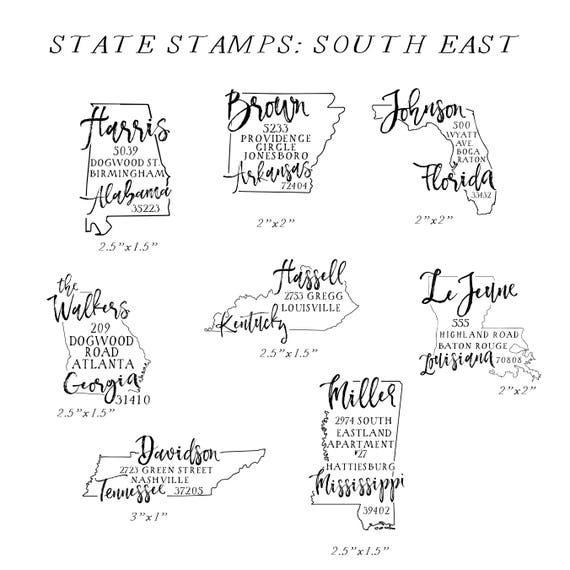 STATE STAMPS: SOUTH EAST
Harris
5039
DOGWOOD ST.
BIRMINGHAM
Alabama
35223
2.5"x1.5"
Brown
5233
PROVIDENCE
CIRCLE
JONESBORO
Arkansas
72404
2"x2"
Johnson
500
WYATT
AVE.
BOCA
RATON
Florida
33432
2"x2"
the
Walkers
209
DOGWOOD
ROAD
ATLANTA
Georgia
31410
2.5"x1.5"
Hassell
2753 GREGG
LOUISVILLE
Kentucky
2.5"x1.5"
Le Jeune
555
HIGHLAND ROAD
BATON ROUGE
Louisiana 70808
2"x2"
Davidson
2723 GREEN STREET
NASHVILLE
Tennessee 37205
3"x1"
Miller
2974 SOUTH
EASTLAND
APARTMENT
#27
HATTIESBURG
Mississippi
39402
2.5"x1.5"